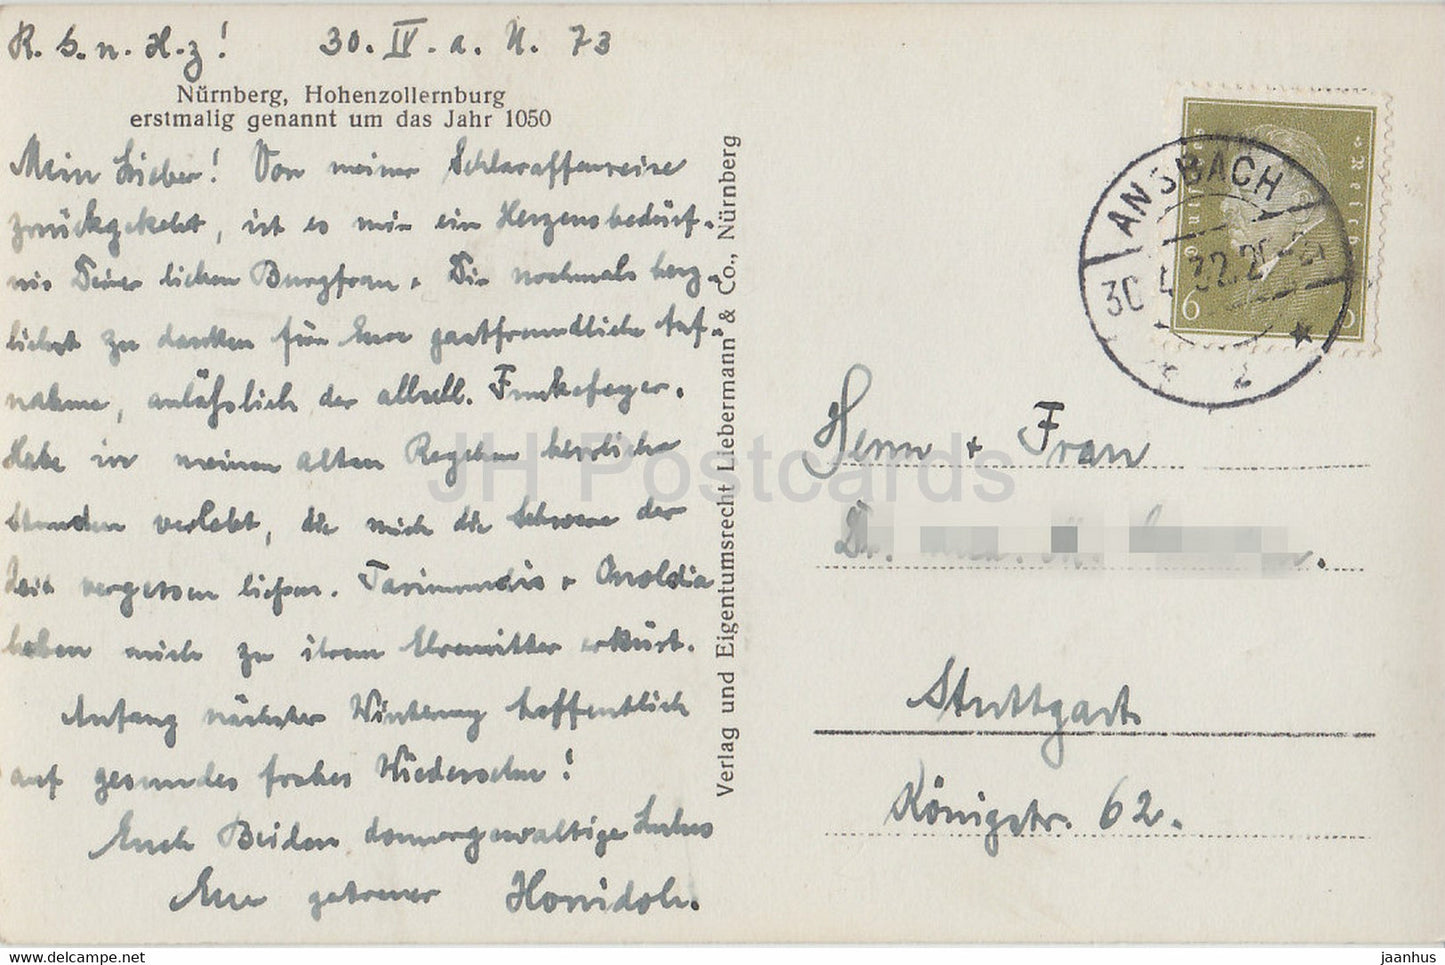 R. G. n. H-z! 30. IV. a. U. 73
Nürnberg, Hohenzollernburg
erstmalig genannt um das Jahr 1050
Mein Lieber! Von meiner Schlaraffenreise
zurückgekehrt, ist es mir ein Herzensbedürf-
nis Deiner lieben Burgfrau + Dir nochmals herz-
lichst zu danken für Eure gastfreundliche Auf-
nahme, anläßlich der allschl. Funkefeyer.
Habe in meinen alten Reychen herrliche
Stunden verlebt, die mich die Schwere der
Zeit vergessen ließen. Tarimundis + Onoldia
haben mich zu ihrem Ehrenritter erkürt.
Anfang nächster Winterung hoffentlich
auf gesundes frohes Wiedersehn!
Euch Beiden donnergewaltige Lulus
Euer getreuer
Verlag und Eigentumsrecht Liebermann & Co., Nürnberg
Deutsches Reich
6 6
ANSBACH
30.4.32.
2
Herrn + Frau
Dr. med.
Stuttgart
Königstr. 62.
JH Postcards
www.hippostcard.com
jaanhus